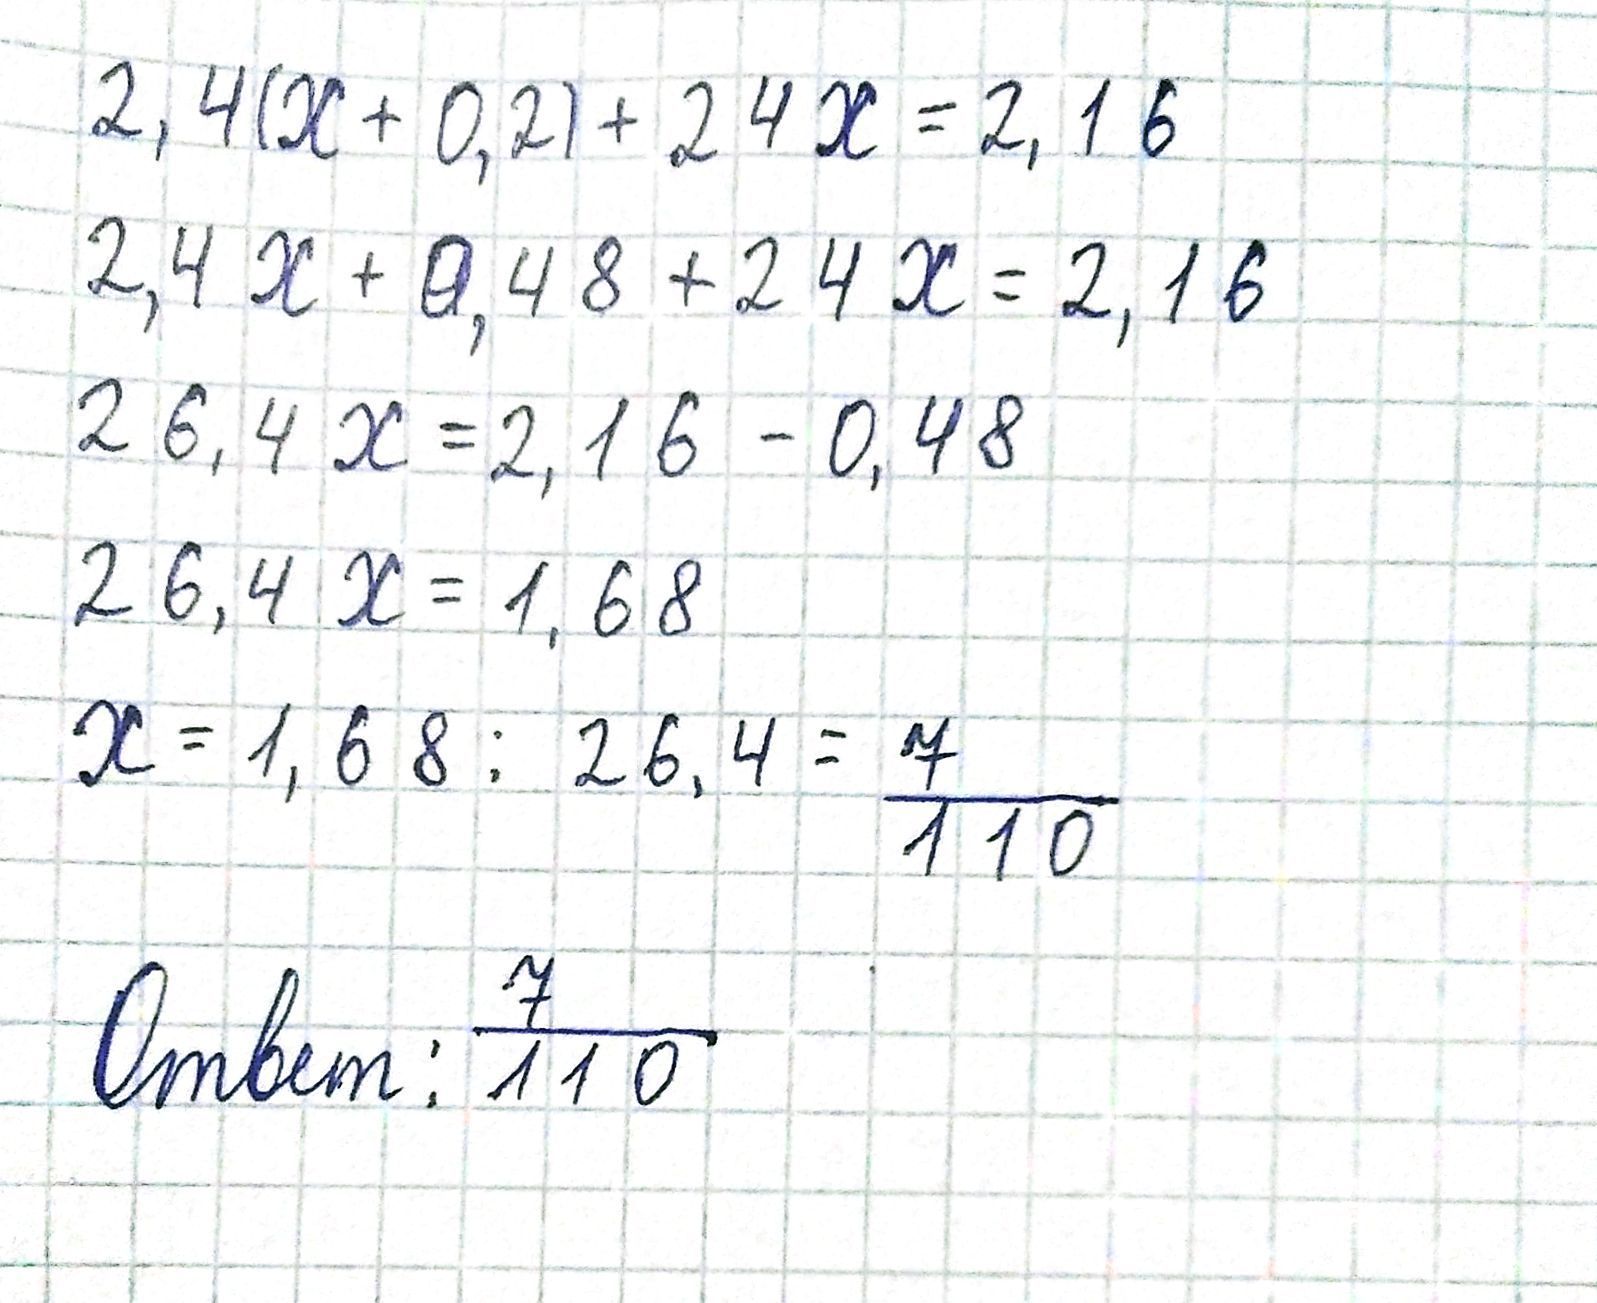 2,4(x + 0,2) + 24x = 2,16
2,4x + 0,48 + 24x = 2,16
26,4x = 2,16 - 0,48
26,4x = 1,68
x = 1,68 : 26,4 = 7/110
Ответ: 7/110